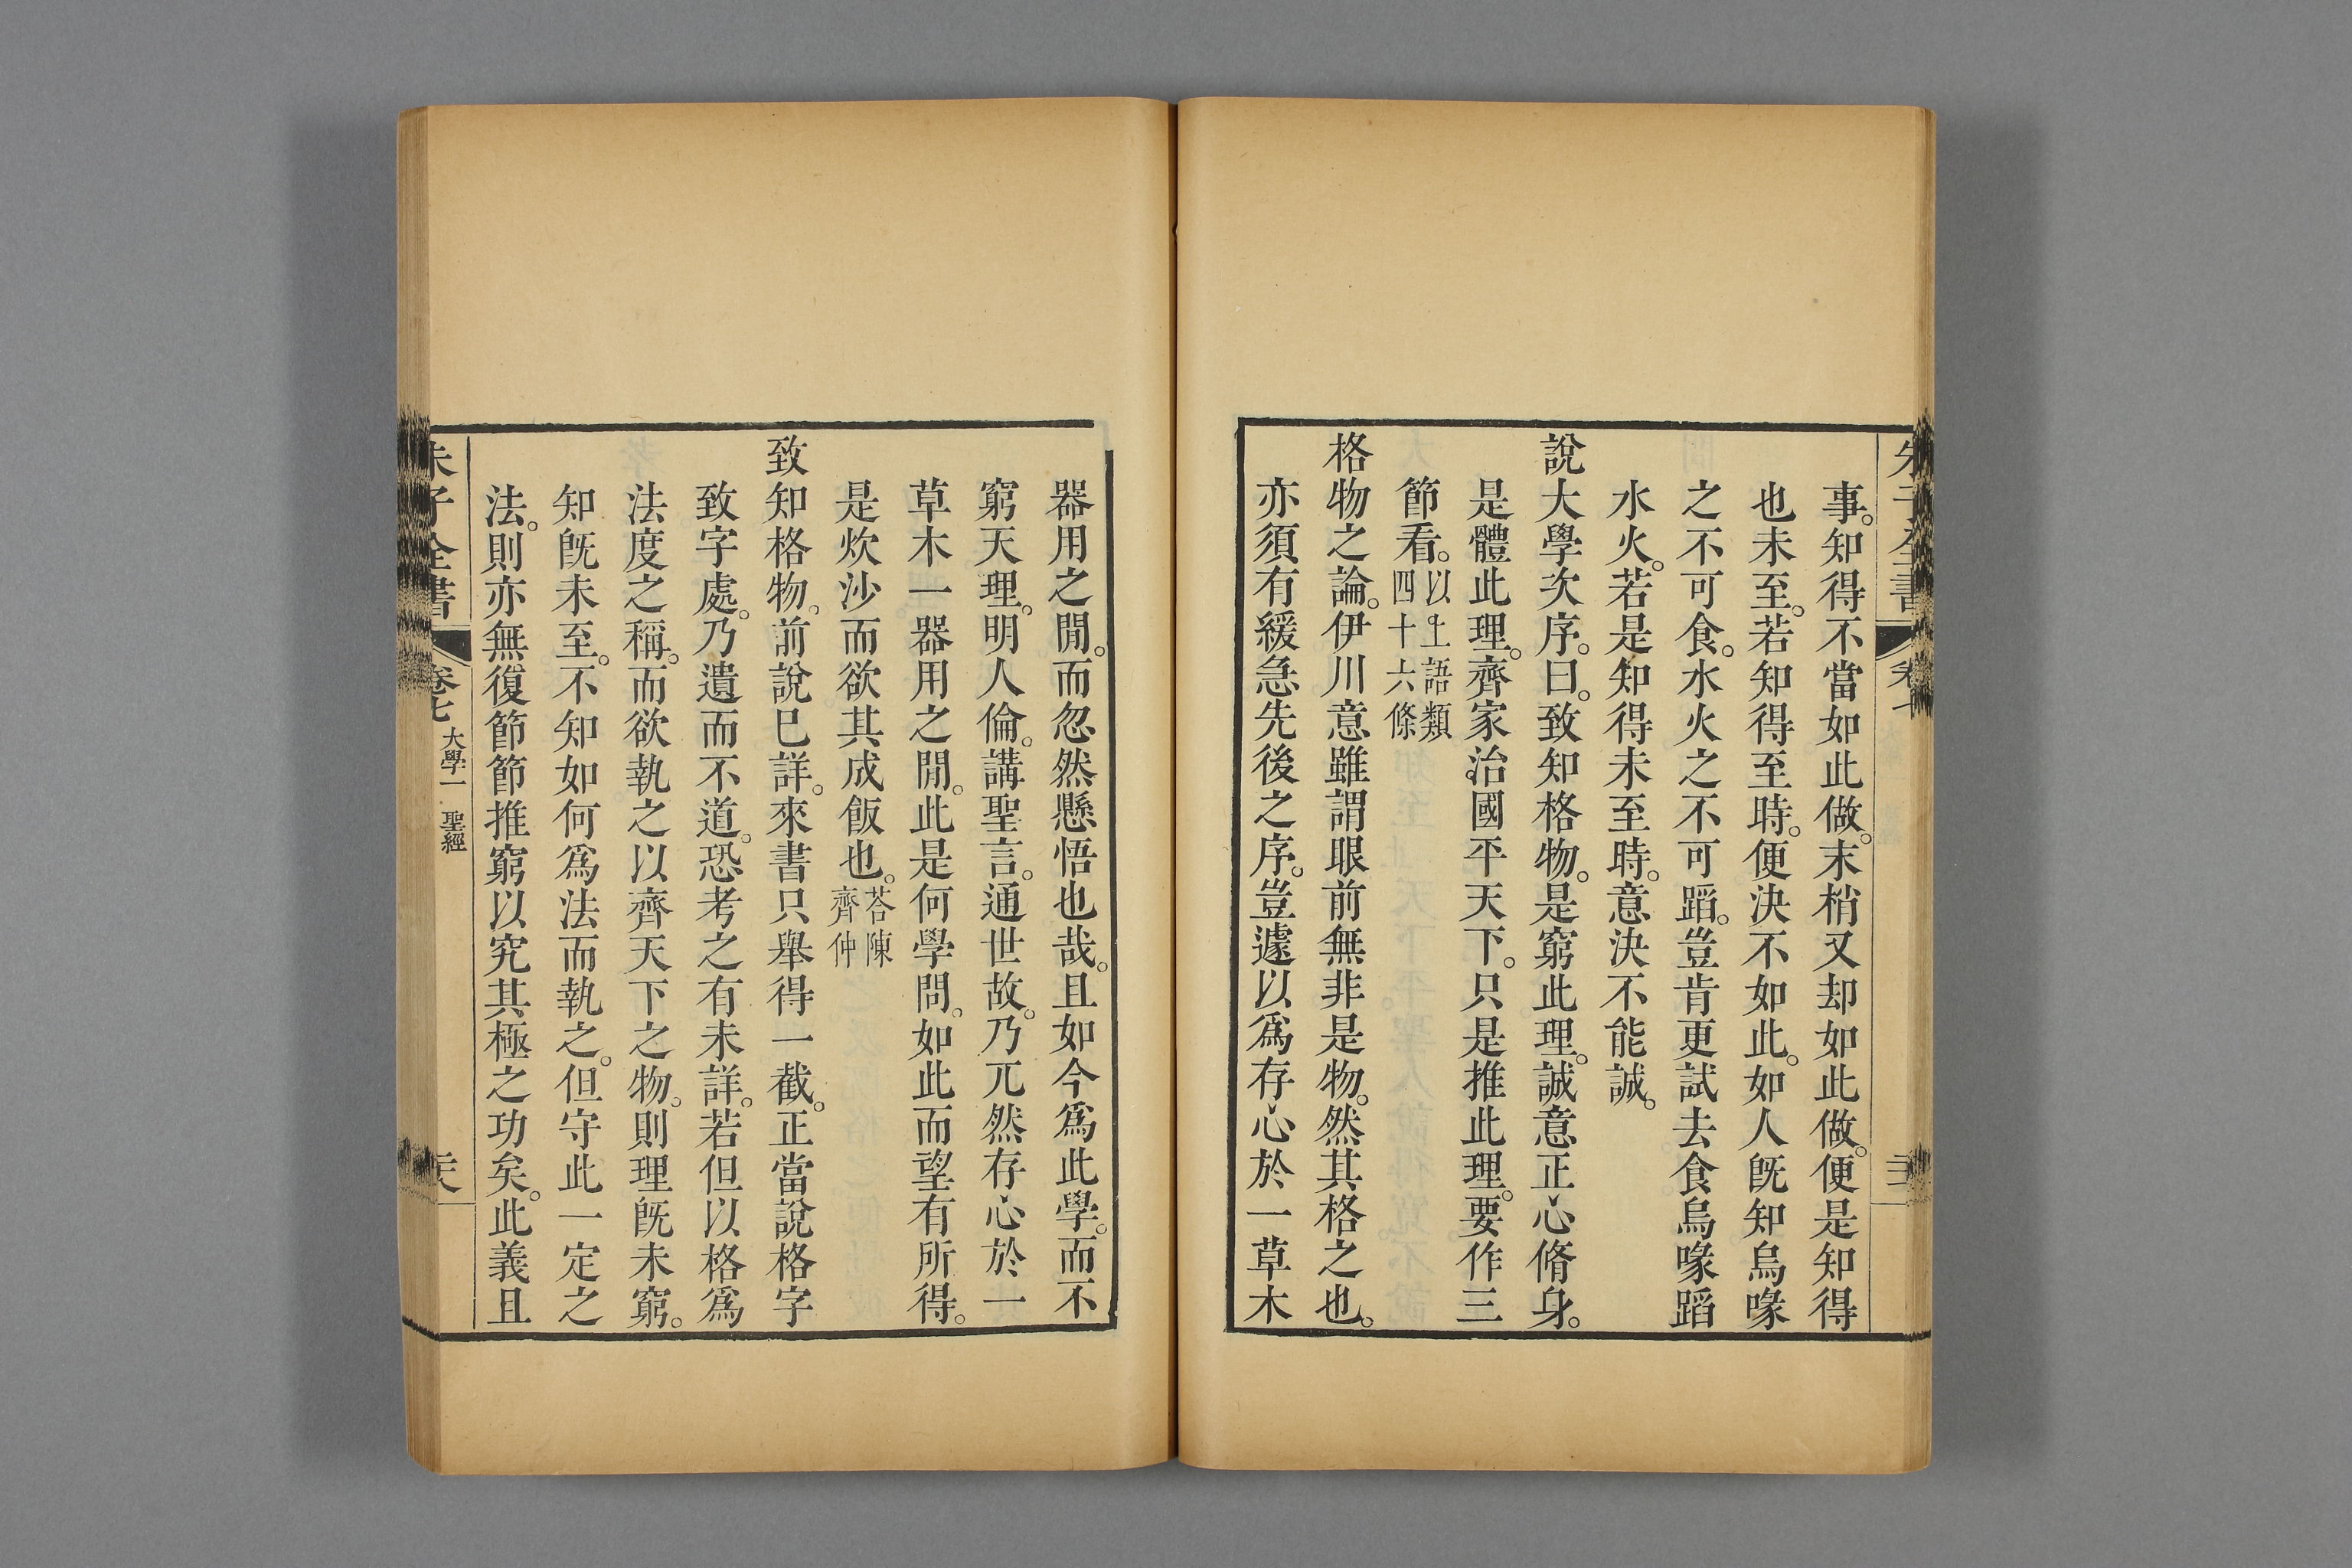 事。知得不當如此做。末梢又却如此做。便是知得
也未至。若知得至時。便決不如此。如人旣知烏喙
之不可食。水火之不可蹈。豈肯更試去食烏喙蹈
水火。若是知得未至時。意決不能誠。
說大學次序。曰。致知格物。是窮此理。誠意正心脩身。
是體此理。齊家治國平天下。只是推此理。要作三
節看。以上語類四十六條
格物之論。伊川意雖謂眼前無非是物。然其格之也。
亦須有緩急先後之序。豈遽以爲存心於一草木
器用之閒。而忽然懸悟也哉。且如今爲此學。而不
窮天理。明人倫。講聖言。通世故。乃兀然存心於一
草木一器用之閒。此是何學問。如此而望有所得。
是炊沙而欲其成飯也。荅陳齊仲
致知格物。前說已詳。來書只舉得一截。正當說格字
致字處。乃遺而不道。恐考之有未詳。若但以格爲
法度之稱。而欲執之以齊天下之物。則理旣未窮。
知旣未至。不知如何爲法而執之。但守此一定之
法。則亦無復節節推窮以究其極之功矣。此義且
朱子全書 卷七 大學一 聖經